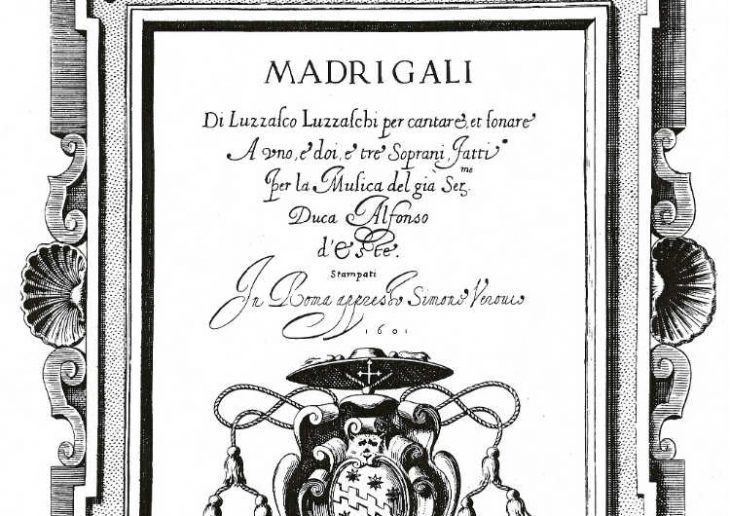 MADRIGALI
Di Luzzasco Luzzaschi per cantare, et sonare
A uno, e doi, e tre Soprani, Fatti
Per la Musica del gia Ser.mo
Duca Alfonso
d'Este.
Stampati
In Roma appresso Simone Verovio
1601